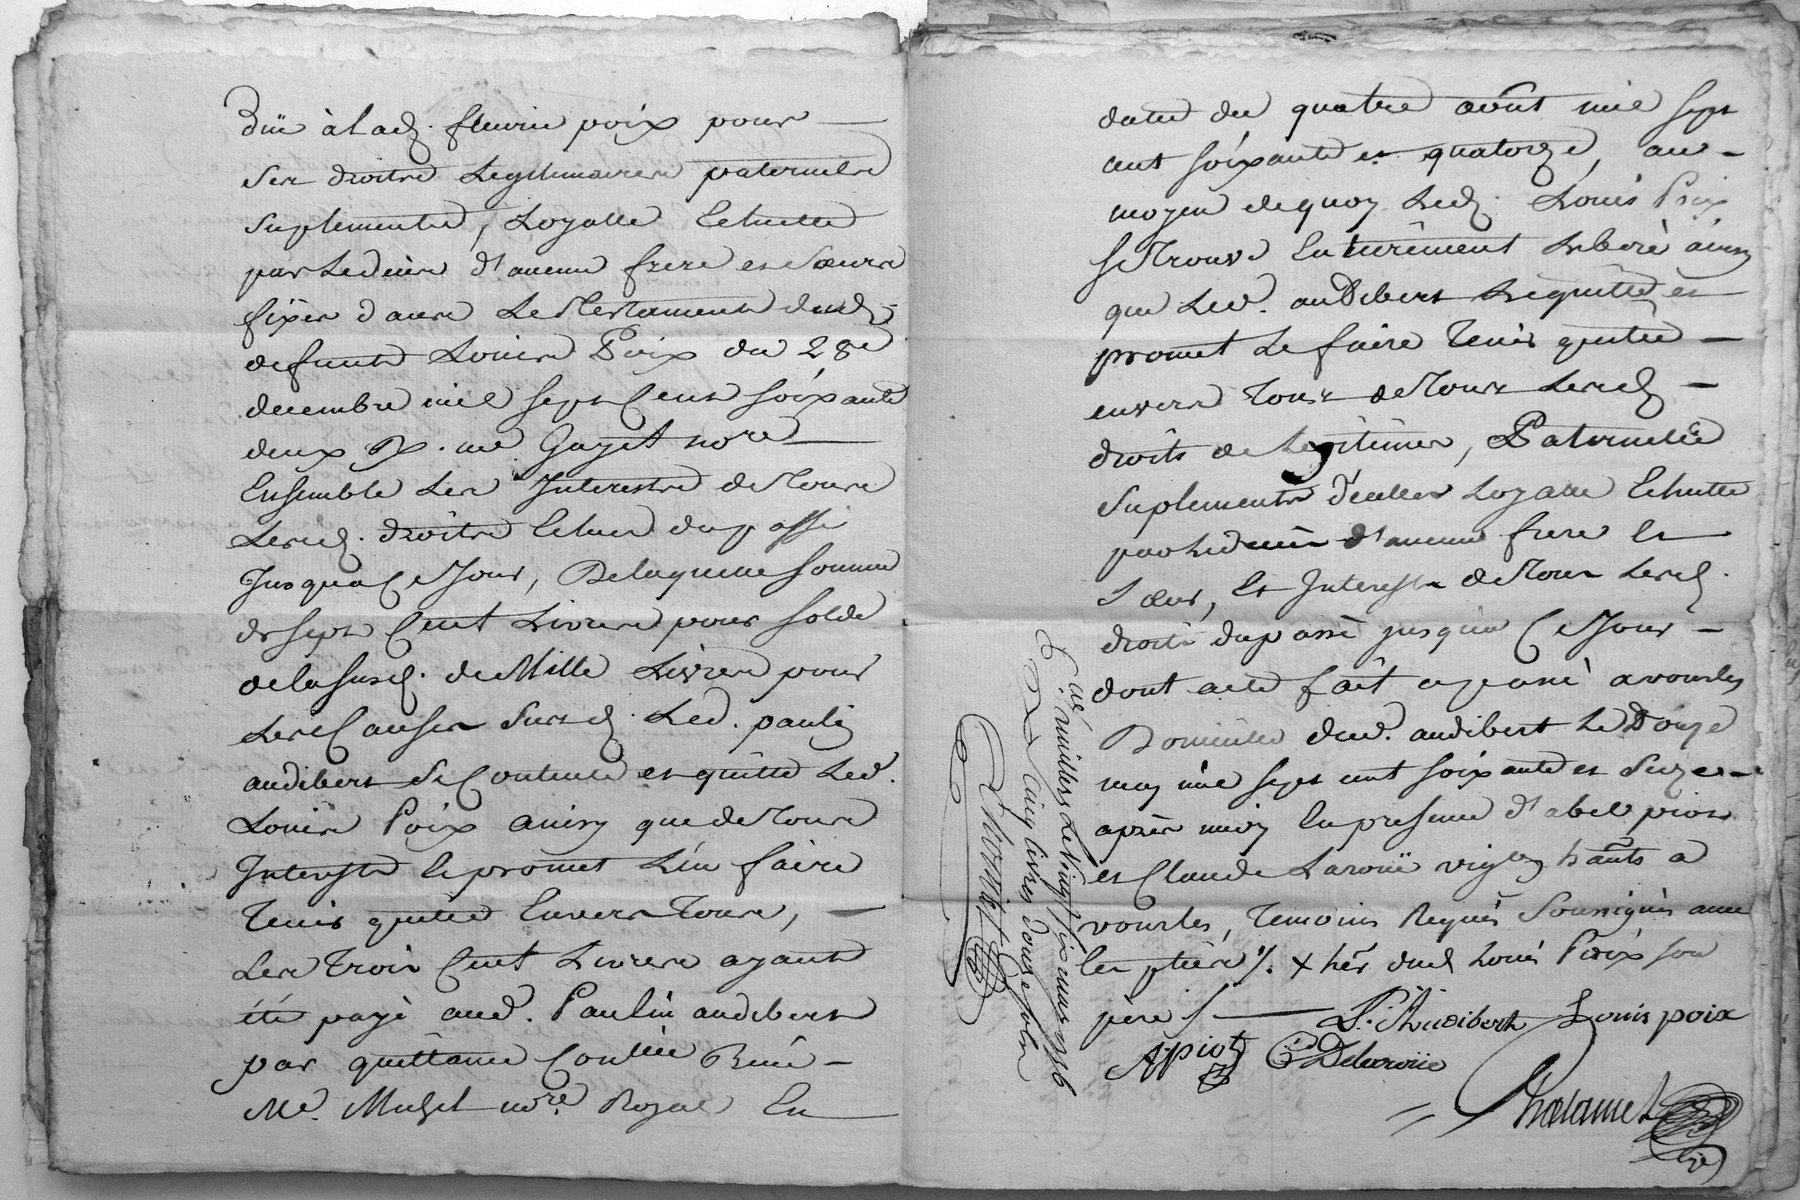 düe à lad. fleurie poix pour
ses droits Legitimaires paternels
suplements, Loyalle Echutte
par Ledeces d'aucun frere et soeurs
fixés dans Le Testament dud.
defunt Louis Poix du 28e
decembre mil sept Cent soixante
deux me. Guyet nore
Ensemble Les Interestz de Tous
Lesd. droits Echus du passé
Jusqua Ce Jour, De laquelle somme
de sept Cent Livres pour solde
de la susd. de Mille Livres pour
Les Causes susd. Led. paulin
audibert Se Contente et quitte Led.
Louis Poix ainsy que de Tous
Interestz Et promet L'en faire
Tenir quitte Envers Tous,
Les Trois Cent Livres ayant
été payé aud. Paulin audibert
par quittance
Me. nore. Royal En
datte du quatre aôut mil sept
cent soixante et quatorze, au
moyen de quoy Led. Louis Poix
se Trouve Entierement Liberé ainsy
que Led. audibert Le quitte et
promet Le faire Tenir quitte
envers Tous de Tous Lesd.
droits de Legitimes, Paternelle
Suplements d'icelles Loyalle Echutte
par Ledeces d'aucun frere Et
soeur, Et Interests de Tous Lesd.
droits du passé jusqua Ce Jour
dont acte fait et passé a vourles
Domicille dud. audibert Le Douze
may mil sept cent soixante et seize
après midy En presence d'abel piot
et Claude Laroüe vigns hants a
vourles, Temoins Requis Soussignés avec
les pties /. x her. dud. Louis Poix son
pere /
P. Audibert Louis poix
A piot C Delaroüe
Ctlé à Millery Le vingt six may 1776
R Cinq livres douze sols